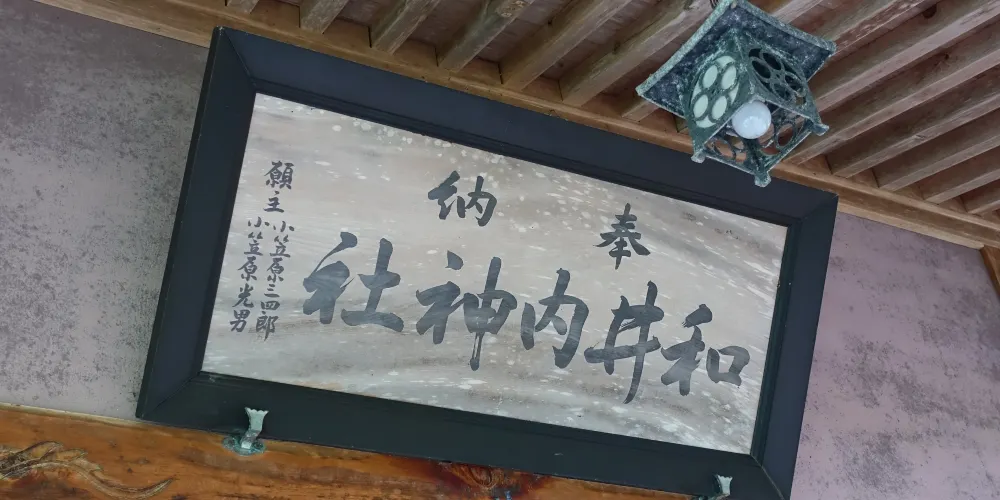 奉納
和井内神社
願主
小笠原三四郎
小笠原光男